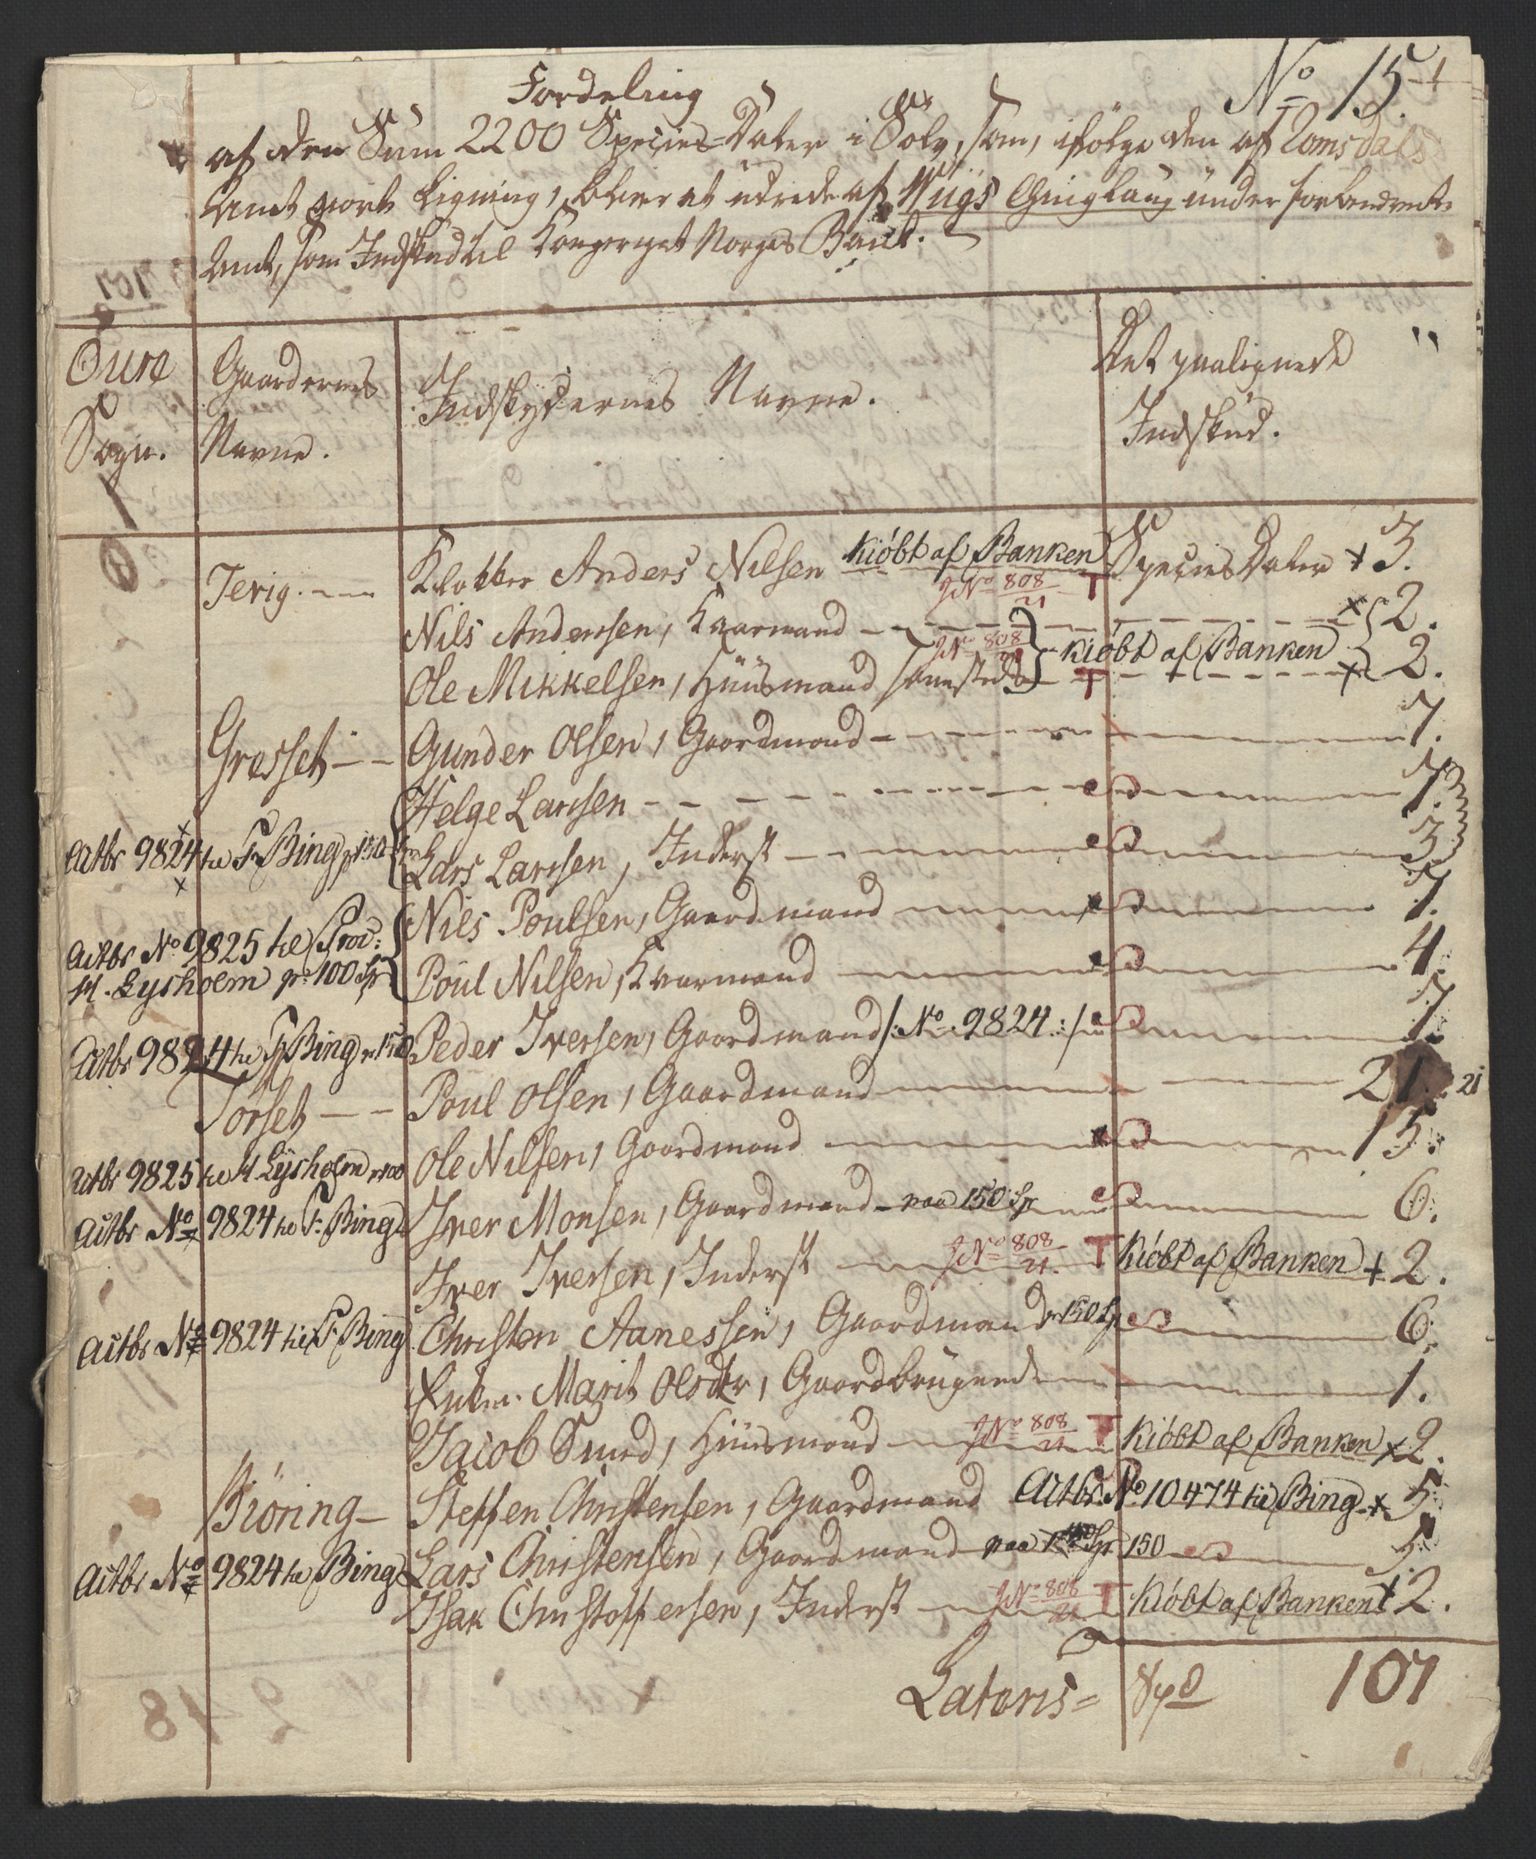 No 15
Fordeling
af den Sum 2200 Species-Daler i Sölv, som, ifölge den af Romsdals
Amt giort Ligning, bliver at udrede af Wügs Tinglaug under forbenævnte
Amt, som Indskud til Kongeriget Norges Bank.
107
Öure Sogn.
Gaardernes Navne.
Indskydernes Navne.
Det paalignede Indskud.
1
Jerig. Klokker Anders Nilsen Kiöbt af Banken Species Daler + 3.
JNo 808/21 T
Nils Andersen, Kaarmand x 2.
JNo 808 Kiöbt af Banken
Ole Mikkelsen, Huusmand sammesteds T x 2.
Gresset Gunder Olsen, Gaardmand 7.
Helge Larsen 7.
Actbr 9824 til F. Bing pr 150
Lars Larsen, Inderst 3
Nils Poulsen, Gaardmand 7.
Actbr No 9825 til Prov:
M. Lysholm pr 100 Sp
Poul Nilsen, Kaarmand 4.
Actbr 9824 til F. Bing pr 150 Peder Iversen, Gaardmand /: No 9824 :/ 7.
Torset Poul Olsen, Gaardmand 21. 21
Actbr 9825 til M. Lysholm pr 100 Ole Nilsen, Gaardmand 15.
Actbr No 9824 til F. Bing Iver Monsen, Gaardmand paa 150 Sp 6.
Iver Iversen, Inderst JNo 808/21. T Kiöbt af Banken + 2.
Actbr No 9824 til F. Bing Christen Aanessen, Gaardmand pr 150 Sp 6.
Enken Marit Olsdtr, Gaardbrugende 1.
Jacob Smed, Huusmand JNo 808/21 T Kiöbt af Banken x 2.
Biöring Steffen Christensen, Gaardmand Actbr No 10474 til Bing x 5.
Actbr No 9824 til Bing Lars Christensen, Gaardmand paa Sp 150 5.
Isak Christoffersen, Inderst JNo 808/21 T Kiöbt af Banken + 2.
Lateris = Spd 107